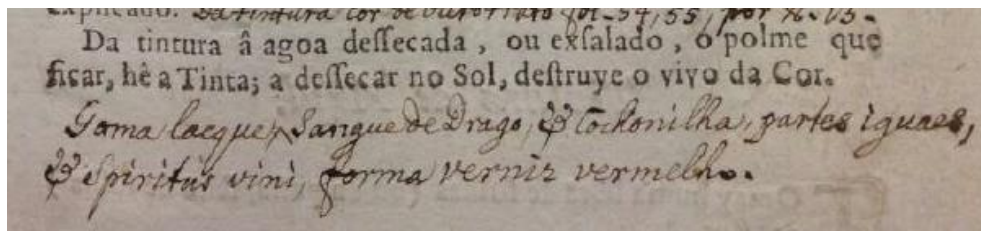 explicado. Da tintura cor de ouro fol. 54, 55, por
Da tintura â agoa deſſecada, ou exſalado, o polme que
ficar, hê a Tinta; a deſſecar no Sol, deſtruye o vivo da Cor.
Goma lacque, Sangue de Drago, & Cochonilha, partes iguaes,
& Spiritus vini, forma verniz vermelho.